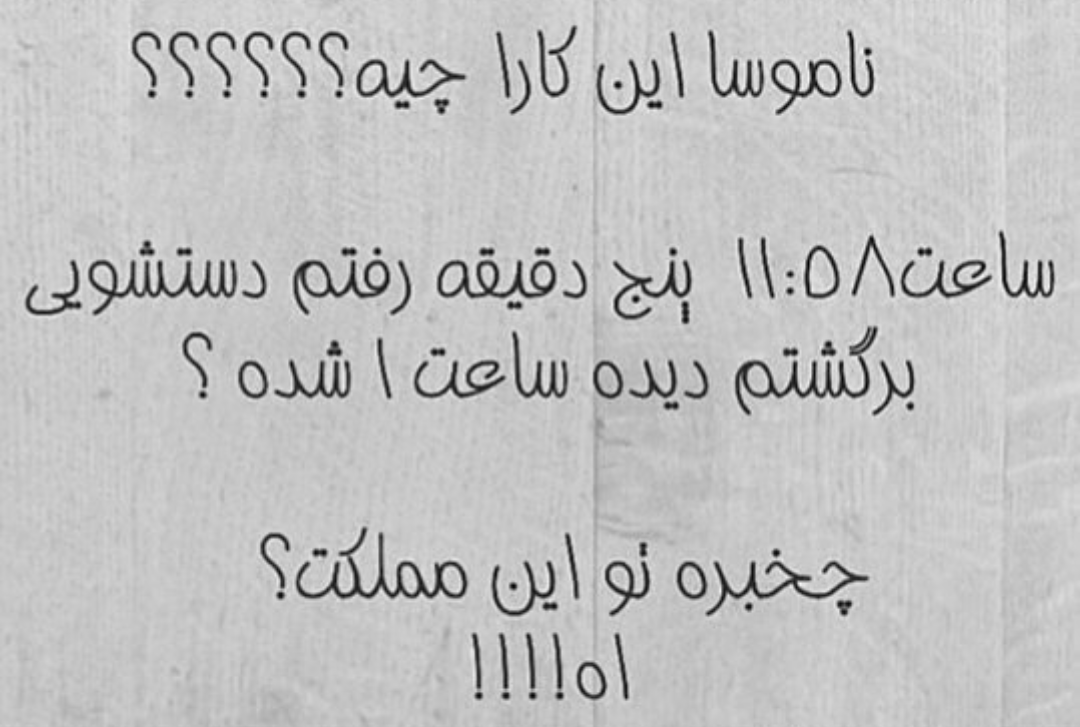 ناموسا این کارا چیه؟؟؟؟؟؟
ساعت۱۱:۵۸ پنج دقیقه رفتم دستشویی
برگشتم دیده ساعت ۱ شده ؟
چخبره تو این مملکت؟
اه!!!!